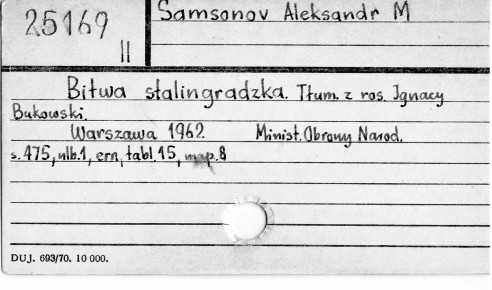 25169
II
Samsonov Aleksandr M
Bitwa stalingradzka. Tłum. z ros. Ignacy
Bukowski.
Warszawa 1962 Minist. Obrony Narod.
s. 475, nlb. 1, err, tabl. 15, map. 8
DUJ. 693/70. 10 000.